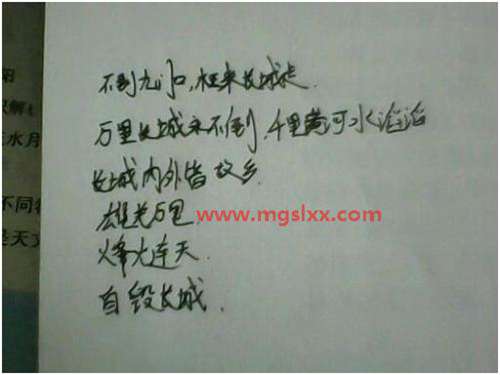 不到九门口,枉来长城走.
万里长城永不倒,千里黄河水滔滔
长城内外皆故乡.
雄关万里.
www.mgslxx.com
烽火连天.
自毁长城.
阳
水月
不同
是天文